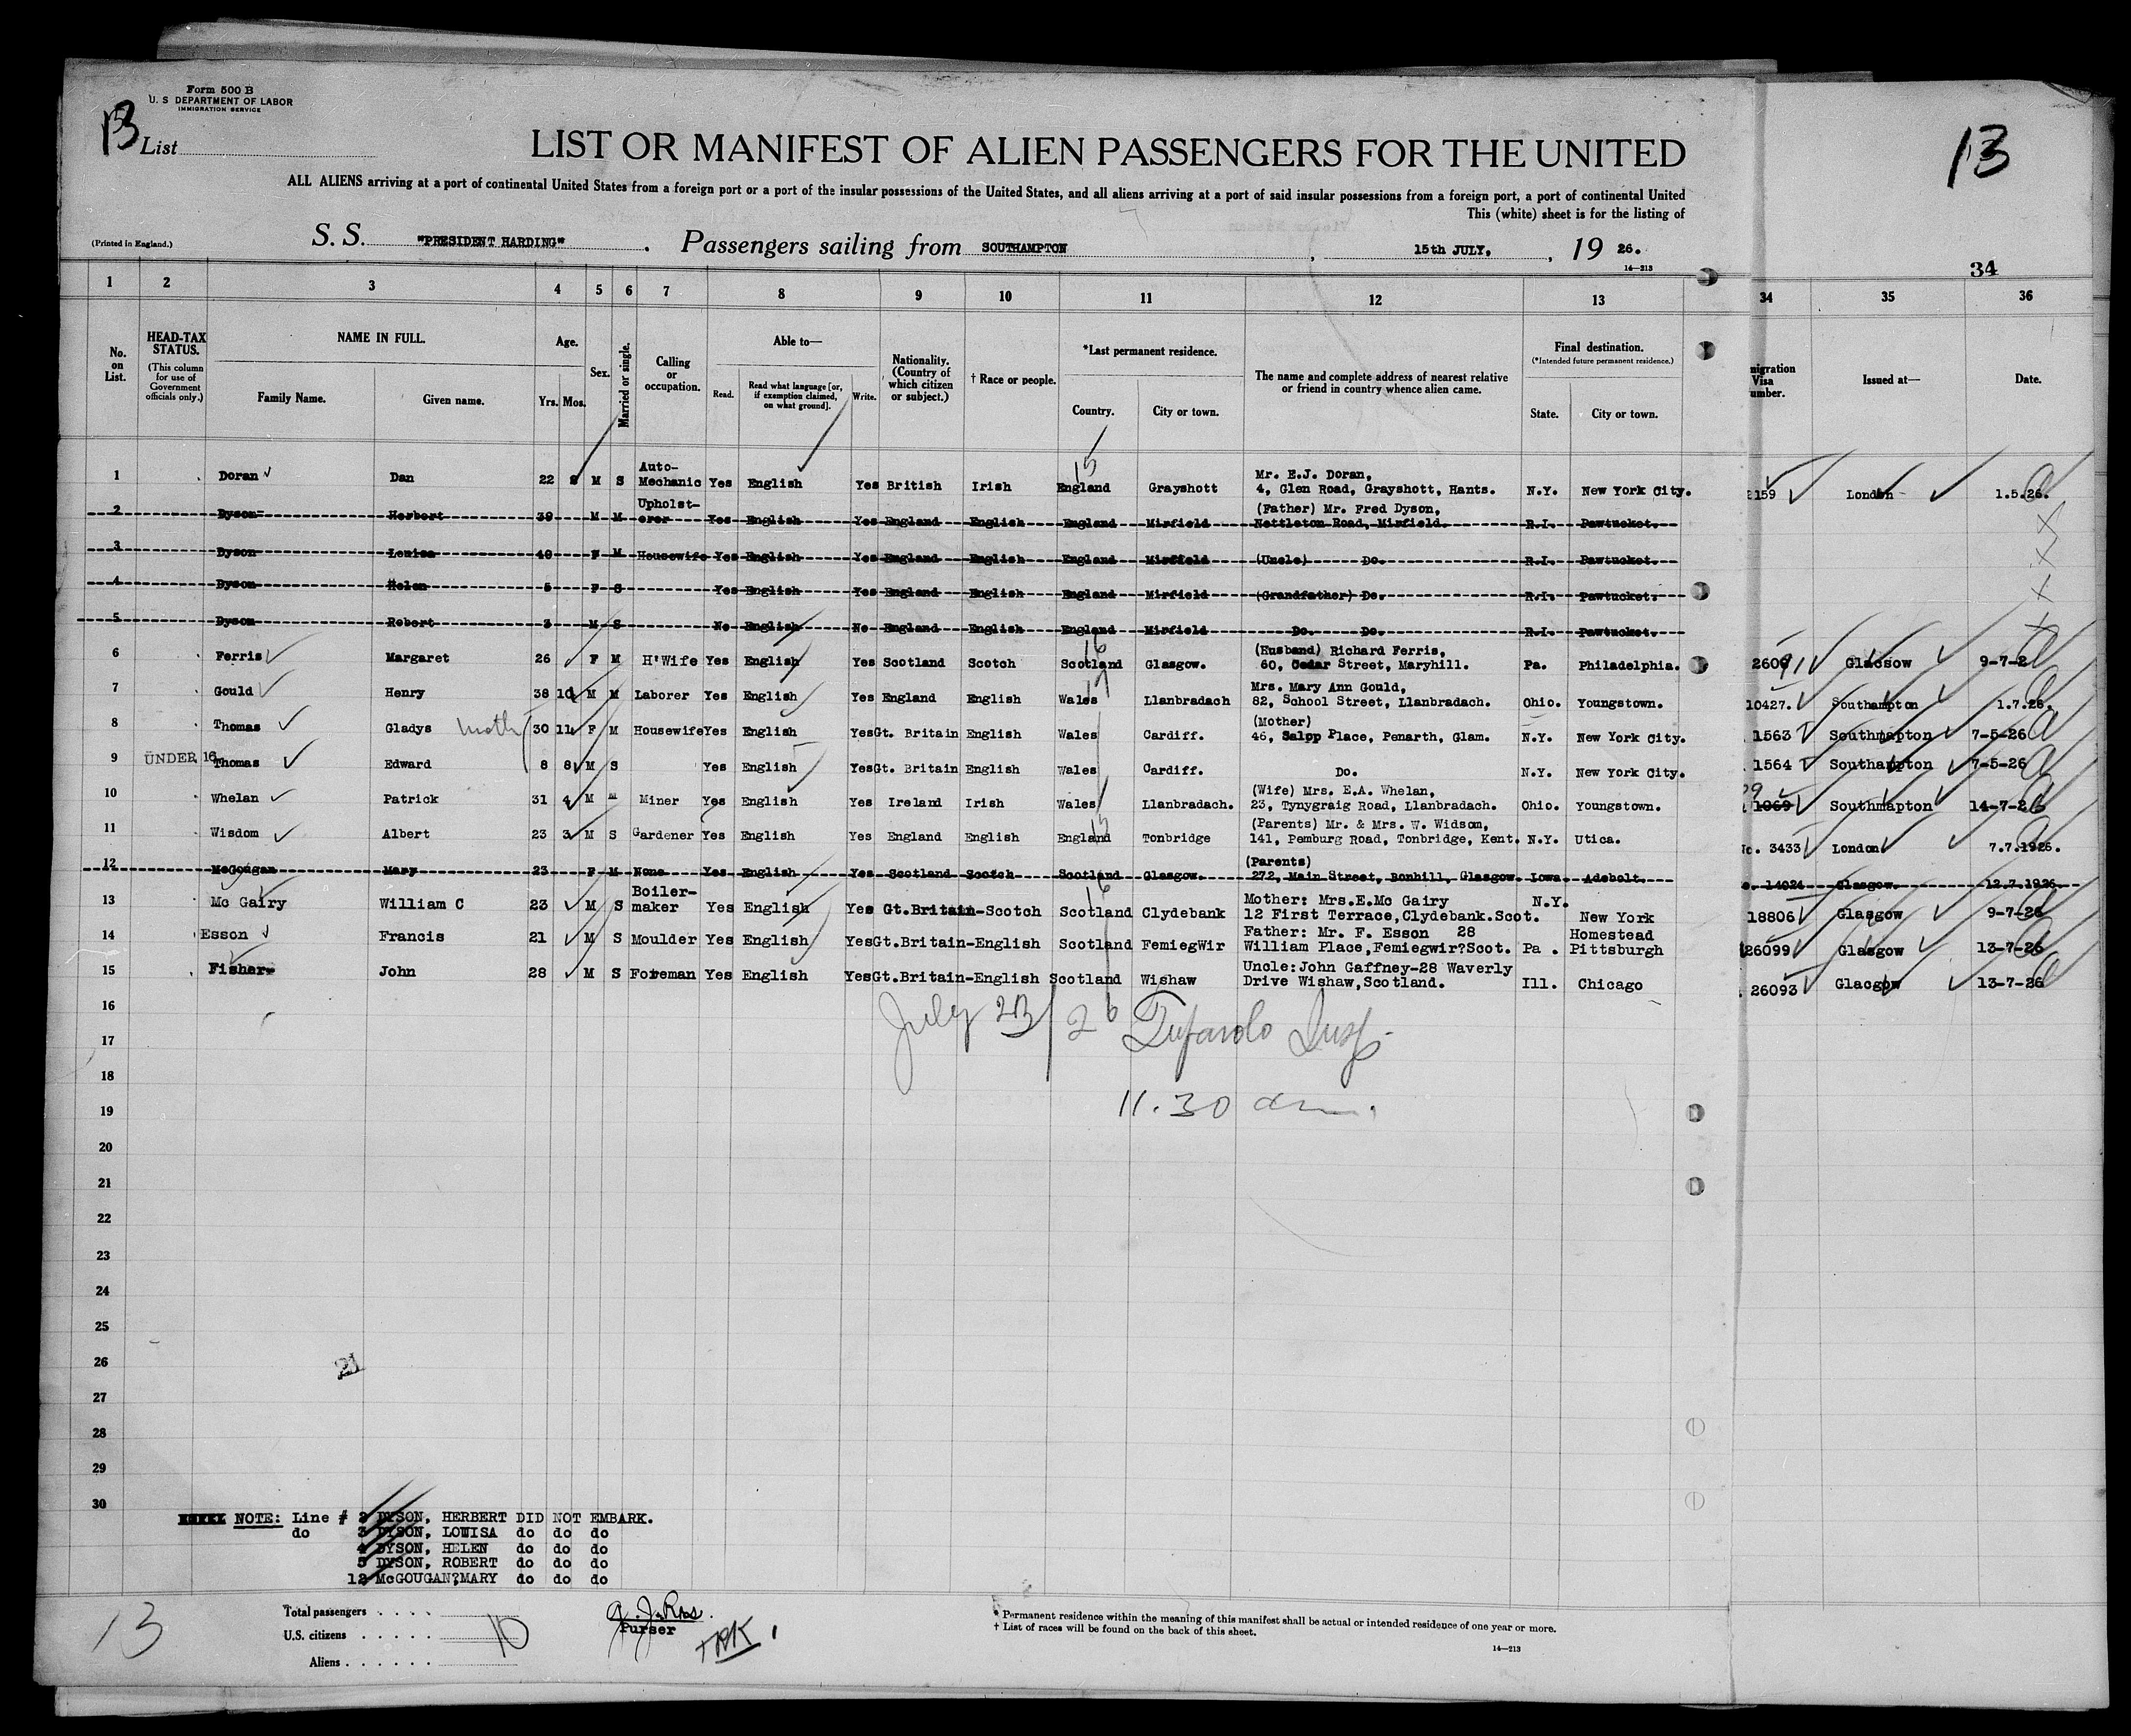 Form 500 B
U. S. DEPARTMENT OF LABOR
IMMIGRATION SERVICE
13
List
LIST OR MANIFEST OF ALIEN PASSENGERS FOR THE UNITED
13
ALL ALIENS arriving at a port of continental United States from a foreign port or a port of the insular possessions of the United States, and all aliens arriving at a port of said insular possessions from a foreign port, a port of continental United
This (white) sheet is for the listing of
(Printed in England.)
S. S. "PRESIDENT HARDING" . Passengers sailing from SOUTHAMPTON , 15th JULY, , 19 26.
14—213
34
1 2 3 4 5 6 7 8 9 10 11 12 13 34 35 36
No. on List.
HEAD-TAX STATUS.
(This column for use of Government officials only.)
NAME IN FULL.
Family Name. Given name.
Age.
Yrs. Mos.
Sex.
Married or single.
Calling or occupation.
Able to—
Read. Read what language [or, if exemption claimed, on what ground]. Write.
Nationality. (Country of which citizen or subject.)
† Race or people.
*Last permanent residence.
Country. City or town.
The name and complete address of nearest relative or friend in country whence alien came.
Final destination.
(*Intended future permanent residence.)
State. City or town.
migration Visa umber.
Issued at—
Date.
1 Doran Dan 22 M S Auto-Mechanic Yes English Yes British Irish England Grayshott Mr. E.J. Doran, 4, Glen Road, Grayshott, Hants. N.Y. New York City. 2159 London 1.5.26.
2 Dyson Herbert 39 M M Upholst-erer Yes English Yes England English England Mirfield (Father) Mr. Fred Dyson, Nettleton Road, Mirfield. R.I. Pawtucket.
3 Dyson Louisa 40 F M Housewife Yes English Yes England English England Mirfield (Uncle) Do. R.I. Pawtucket.
4 Dyson Helen 5 F S Yes English Yes England English England Mirfield (Grandfather) Do. R.I. Pawtucket.
5 Dyson Robert 3 M S No English No England English England Mirfield Do. Do. R.I. Pawtucket.
6 Ferris Margaret 26 F M H'Wife Yes English Yes Scotland Scotch Scotland Glasgow. (Husband) Richard Ferris, 60, Cedar Street, Maryhill. Pa. Philadelphia. Glacsow 9-7-2
7 Gould Henry 38 10 M M Laborer Yes English Yes England English Wales Llanbradach Mrs. Mary Ann Gould, 82, School Street, Llanbradach. Ohio. Youngstown. 10427. Southampton 1.7.26.
8 Thomas Gladys 30 11 F M Housewife Yes English Yes Gt. Britain English Wales Cardiff. (Mother) 46, Salpp Place, Penarth, Glam. N.Y. New York City. 1563 Southmapton 7-5-26
9 UNDER 16 Thomas Edward 8 8 M S Yes English Yes Gt. Britain English Wales Cardiff. Do. N.Y. New York City. 1564 Southampton 7-5-26
10 Whelan Patrick 31 4 M M Miner Yes English Yes Ireland Irish Wales Llanbradach. (Wife) Mrs. E.A. Whelan, 23, Tynygraig Road, Llanbradach. Ohio. Youngstown. 1069 Southmapton 14-7-26
11 Wisdom Albert 23 3 M S Gardener Yes English Yes England English England Tonbridge (Parents) Mr. & Mrs. W. Widsom, 141, Pemburg Road, Tonbridge, Kent. N.Y. Utica. No. 3433 London 7.7.1926.
12 McGougan Mary 23 F M None Yes English Yes Scotland Scotch Scotland Glasgow. (Parents) 272, Main Street, Bonhill, Glasgow. Iowa Adebolt. 14024 Glasgow. 12.7.1926.
13 Mc Gairy William C 23 M S Boiler-maker Yes English Yes Gt.Britain-Scotch Scotland Clydebank Mother: Mrs.E.Mc Gairy 12 First Terrace,Clydebank.Scot. N.Y. New York 18806 Glasgow 9-7-26
14 Esson Francis 21 M S Moulder Yes English Yes Gt.Britain-English Scotland FemiegWir Father: Mr. F. Esson 28 William Place,Femiegwir?Scot. Pa . Homestead Pittsburgh 26099 Glasgow 13-7-26
15 Fisher John 28 M S Foreman Yes English Yes Gt.Britain-English Scotland Wishaw Uncle:John Gaffney-28 Waverly Drive Wishaw,Scotland. Ill. Chicago 26093 Glacgow 13-7-26
16
17
18
19
20
21
22
23
24
25
26
27
28
29
30
11.30 am.
NOTE: Line # 2 DYSON, HERBERT DID NOT EMBARK.
do 3 DYSON, LOUISA do do do
4 DYSON, HELEN do do do
5 DYSON, ROBERT do do do
12 McGOUGAN?MARY do do do
13
Total passengers . . . .
U.S. citizens . . . . . 10
Aliens . . . . . .
Purser
* Permanent residence within the meaning of this manifest shall be actual or intended residence of one year or more.
† List of races will be found on the back of this sheet.
14—213